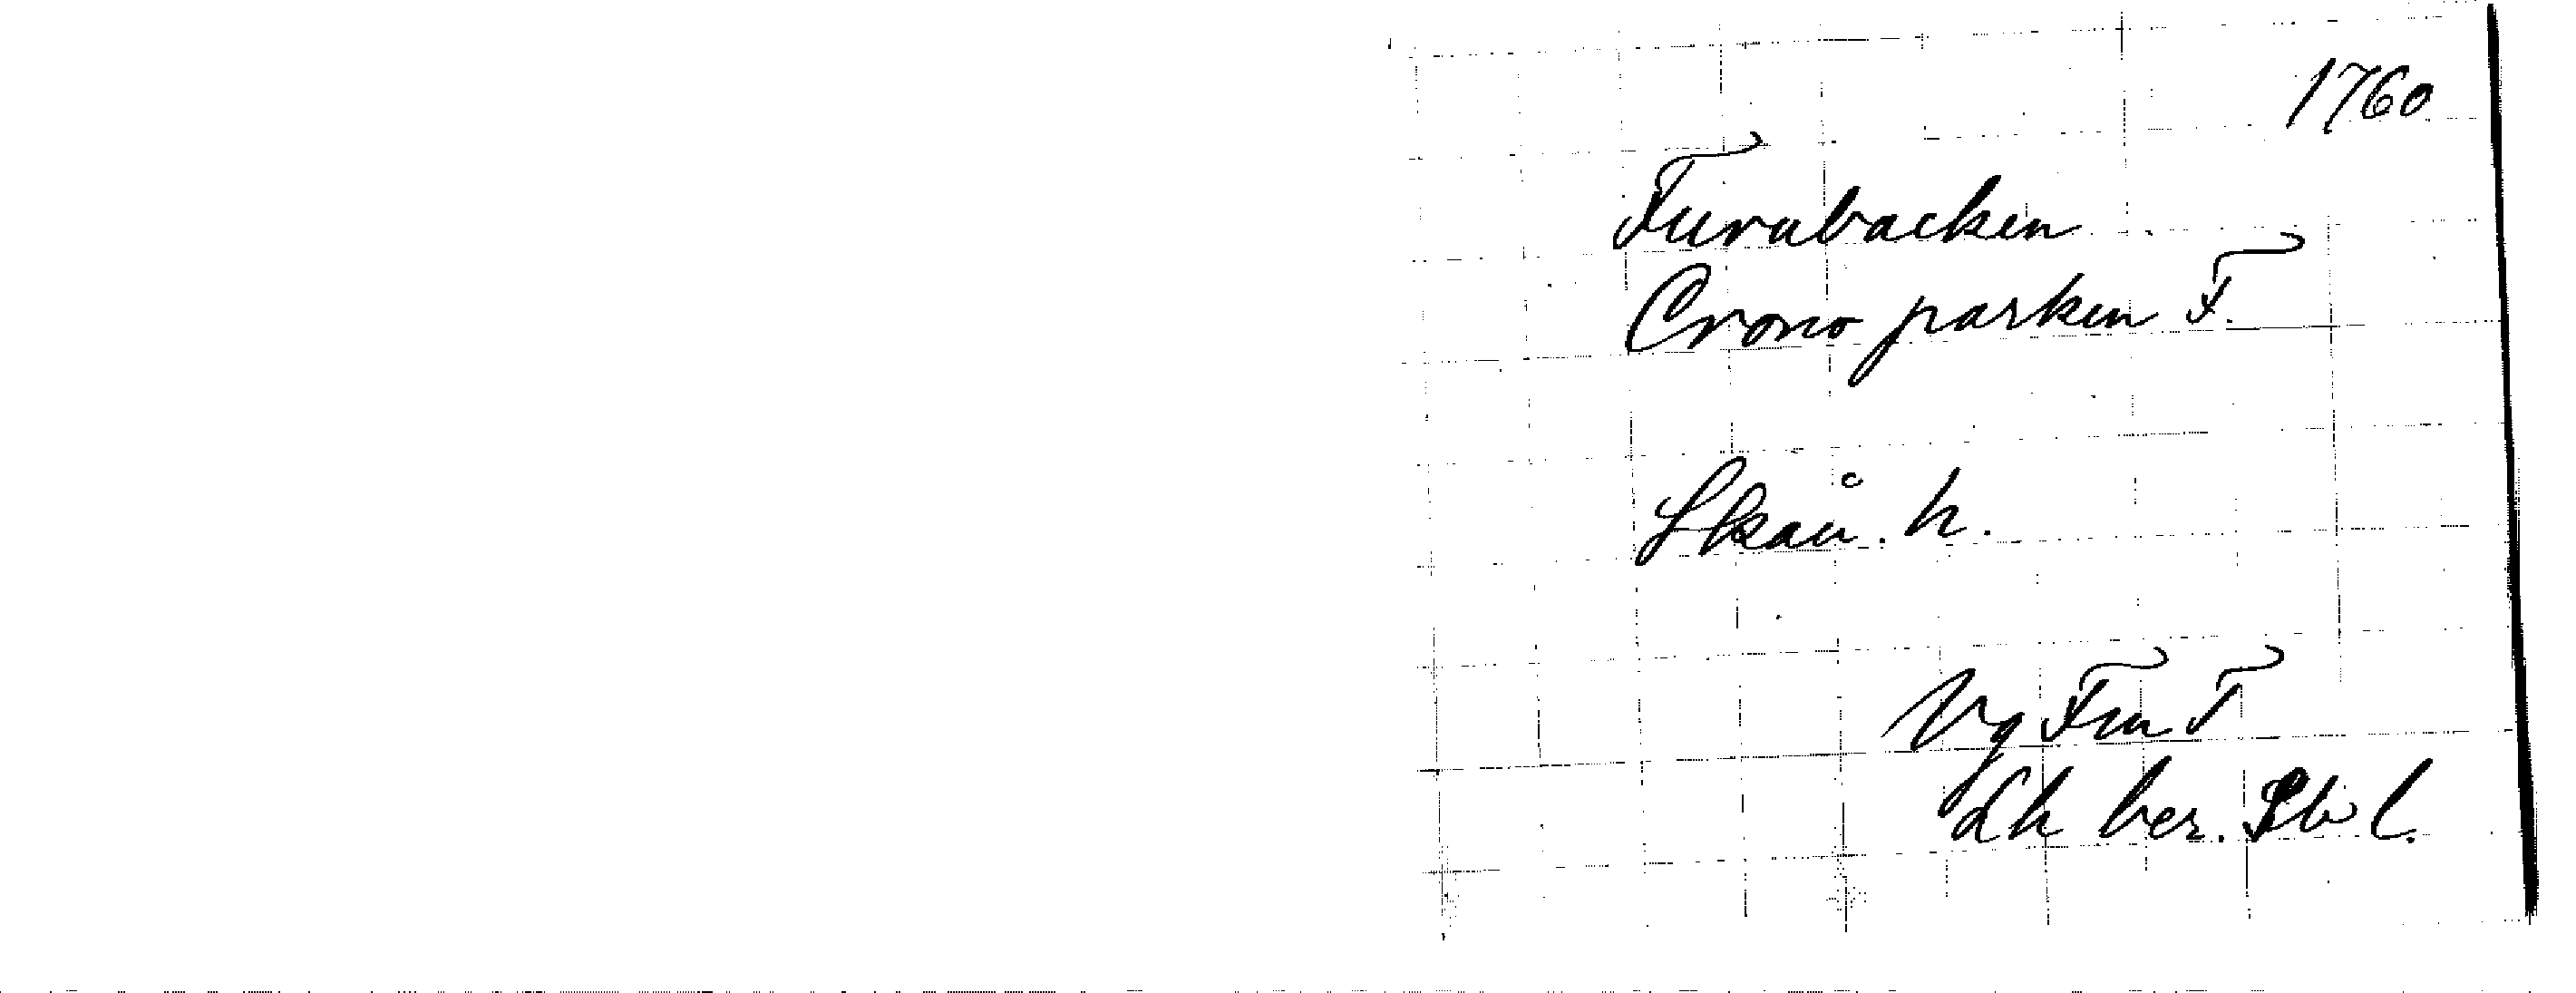 1760
Furubacken
Crono parken F.
Skån. h.
Vg Fru F
Lh ber. Sb l.